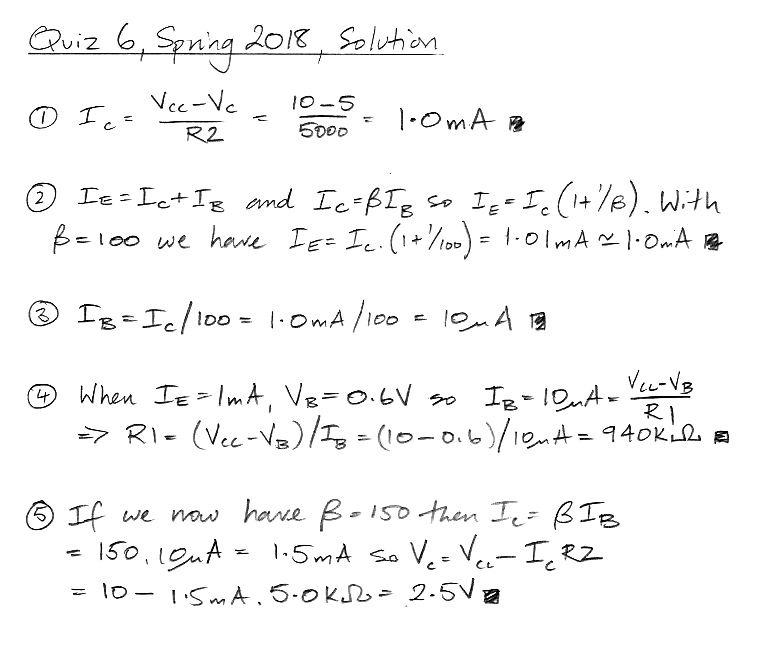 Quiz 6, Spring 2018, Solution
① Ic = (Vcc-Vc)/R2 = (10-5)/5000 = 1.0mA
② IE = Ic+IB and Ic=βIB so IE=Ic(1+1/β). With
β=100 we have IE= Ic.(1+1/100) = 1.01mA ≃ 1.0mA
③ IB=Ic/100 = 1.0mA/100 = 10μA
④ When IE=1mA, VB=0.6V so IB=10μA= (Vcc-VB)/R1
=> R1= (Vcc-VB)/IB = (10-0.6)/10μA = 940KΩ
⑤ If we now have β=150 then Ic= βIB
= 150.10μA = 1.5mA so Vc= Vcc-IcR2
= 10 - 1.5mA.5.0KΩ = 2.5V